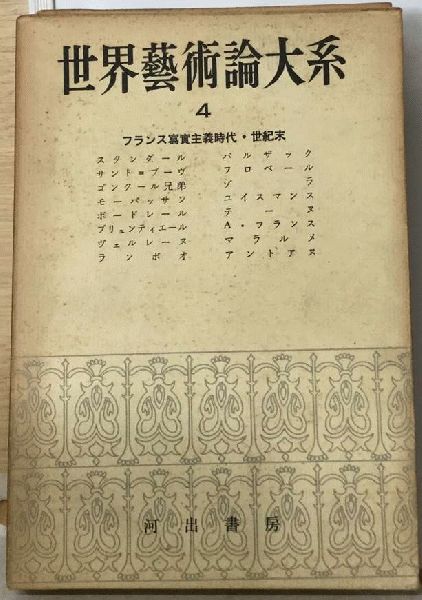 世界藝術論大系
4
フランス寫實主義時代・世紀末
スタンダール バルザック
サント=ブーヴ フロベール
ゴンクール兄弟 ゾラ
モーパッサン ユイスマンス
ボードレール テーヌ
ブリュンティエール A・フランス
ヴェルレーヌ マラルメ
ランボオ アントアヌ
河出書房